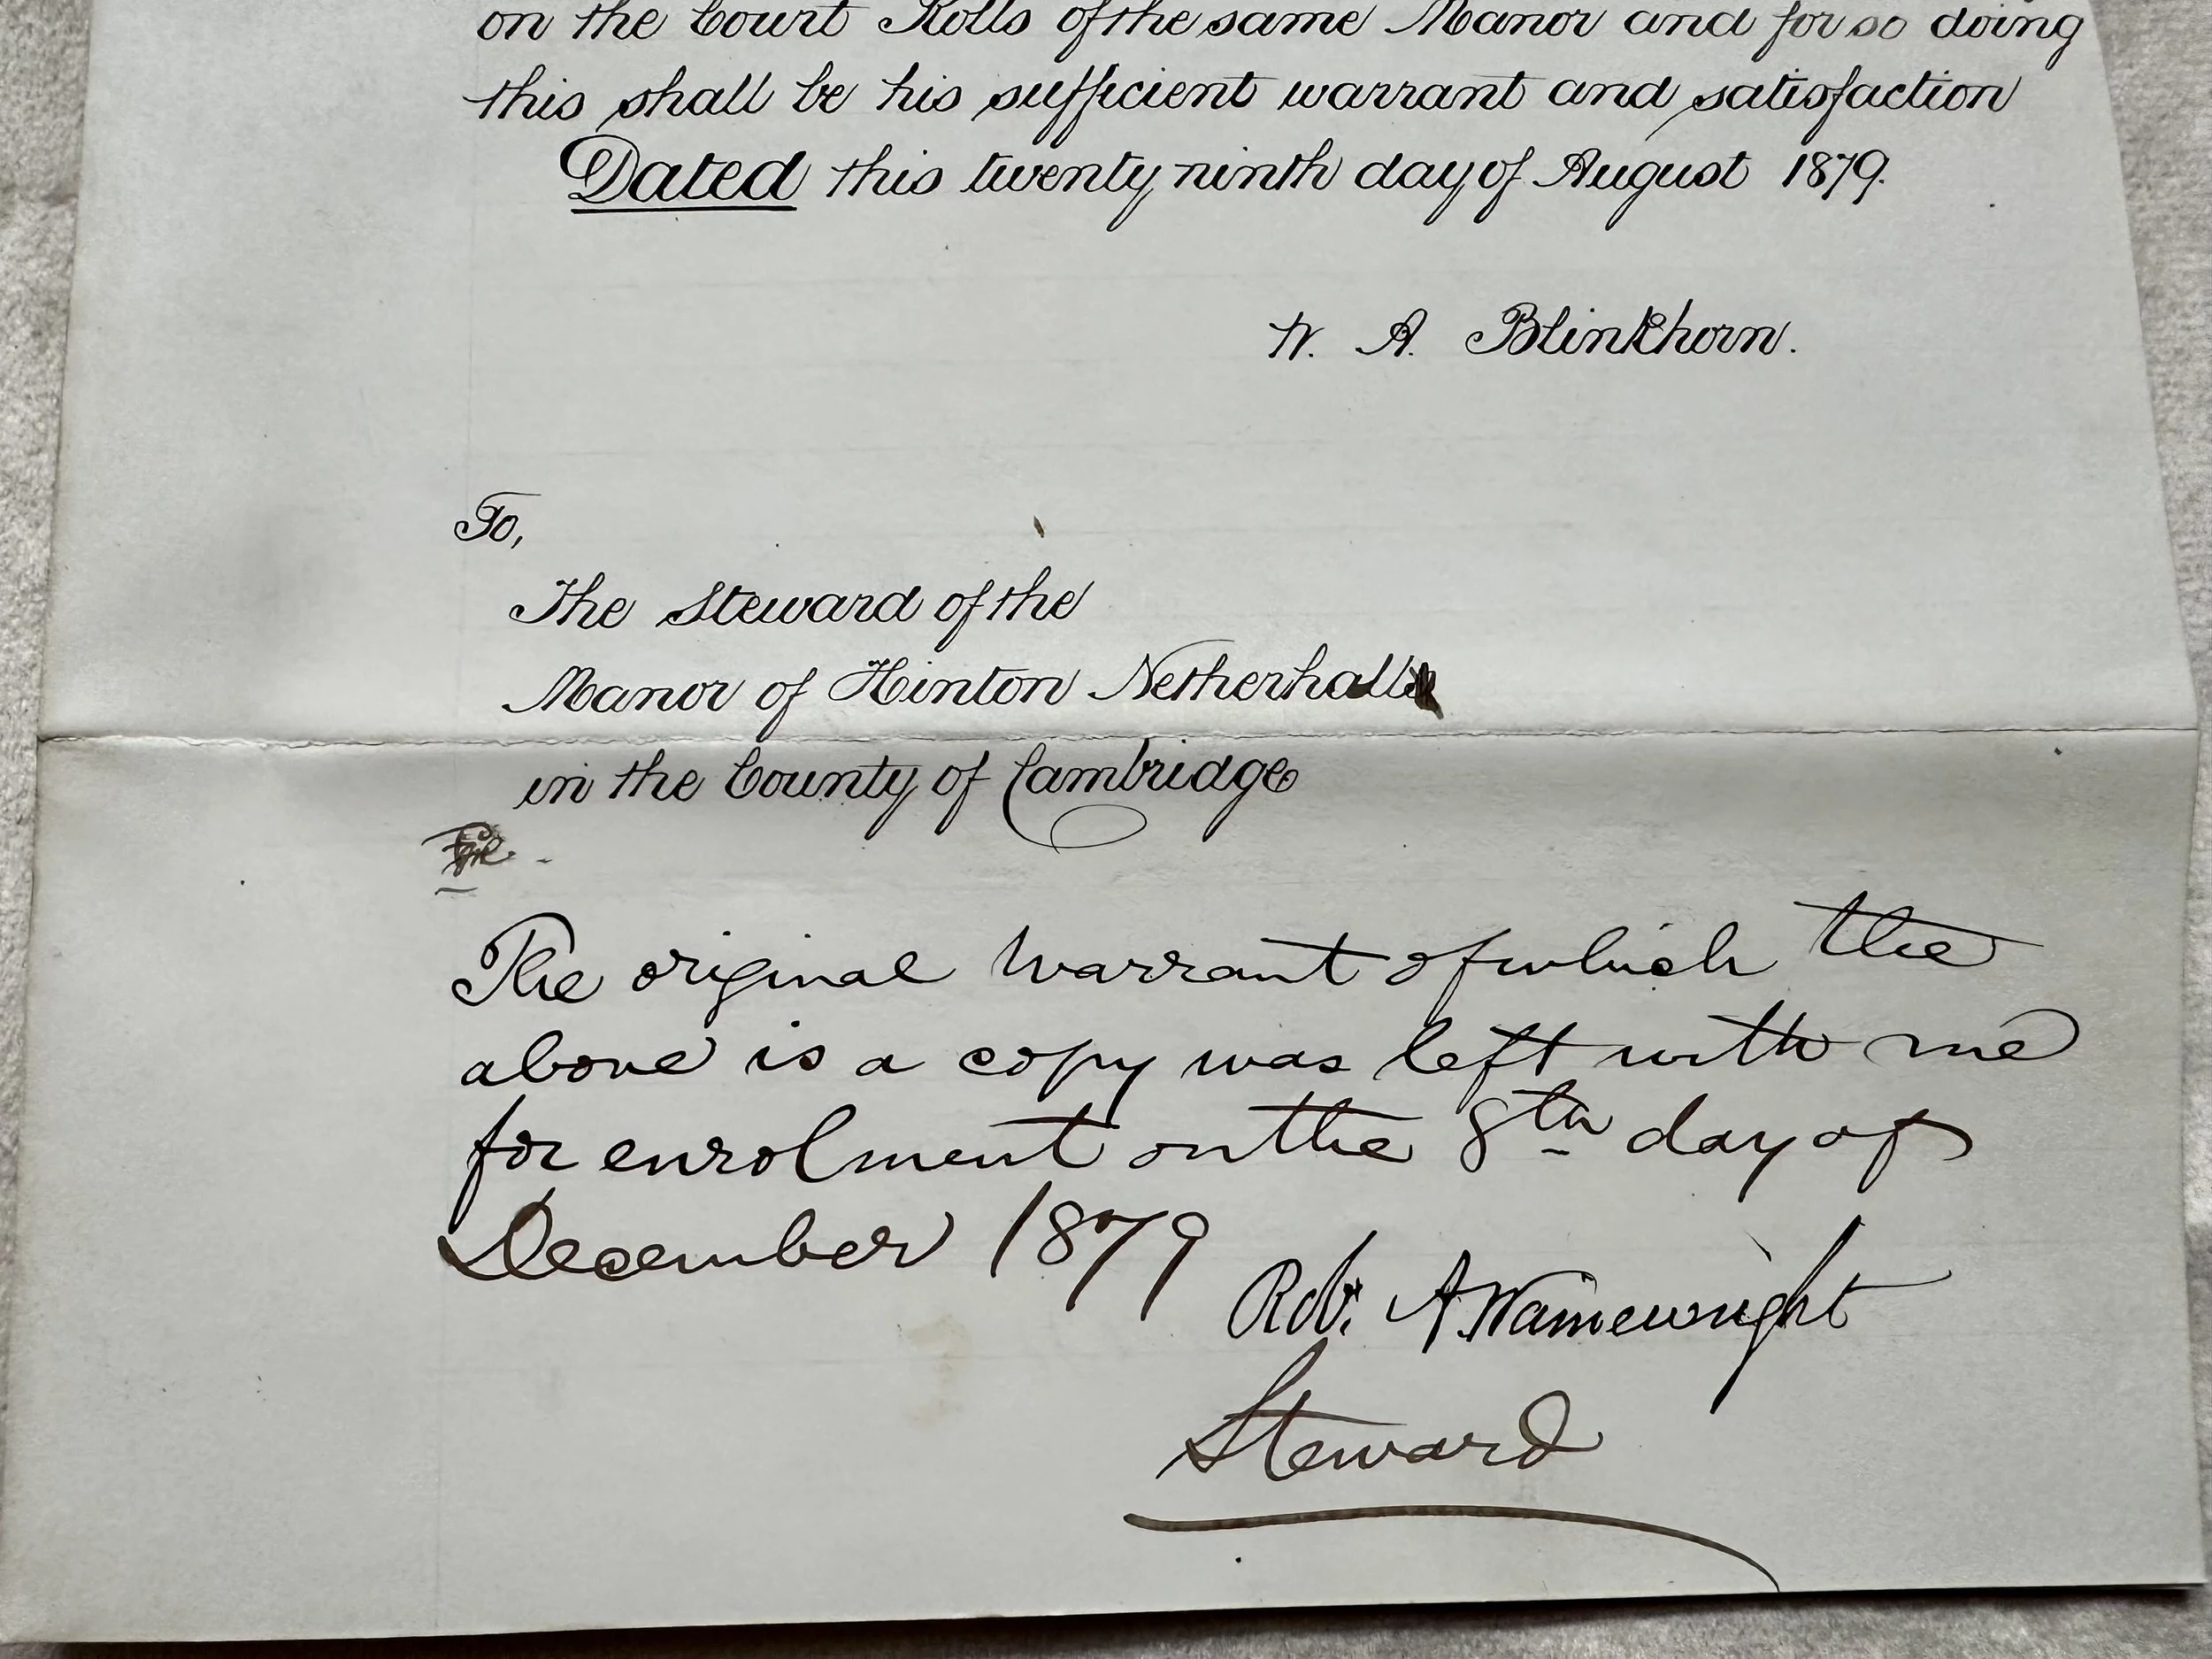 on the Court Rolls of the same Manor and for so doing
this shall be his sufficient warrant and satisfaction
Dated this twenty ninth day of August 1879.
W. A. Blinkhorn.
To,
The Steward of the
Manor of Hinton Netherhall
in the County of Cambridge
The original Warrant of which the
above is a copy was left with me
for enrolment on the 8th day of
December 1879
Rob. A. Wainewright
Steward